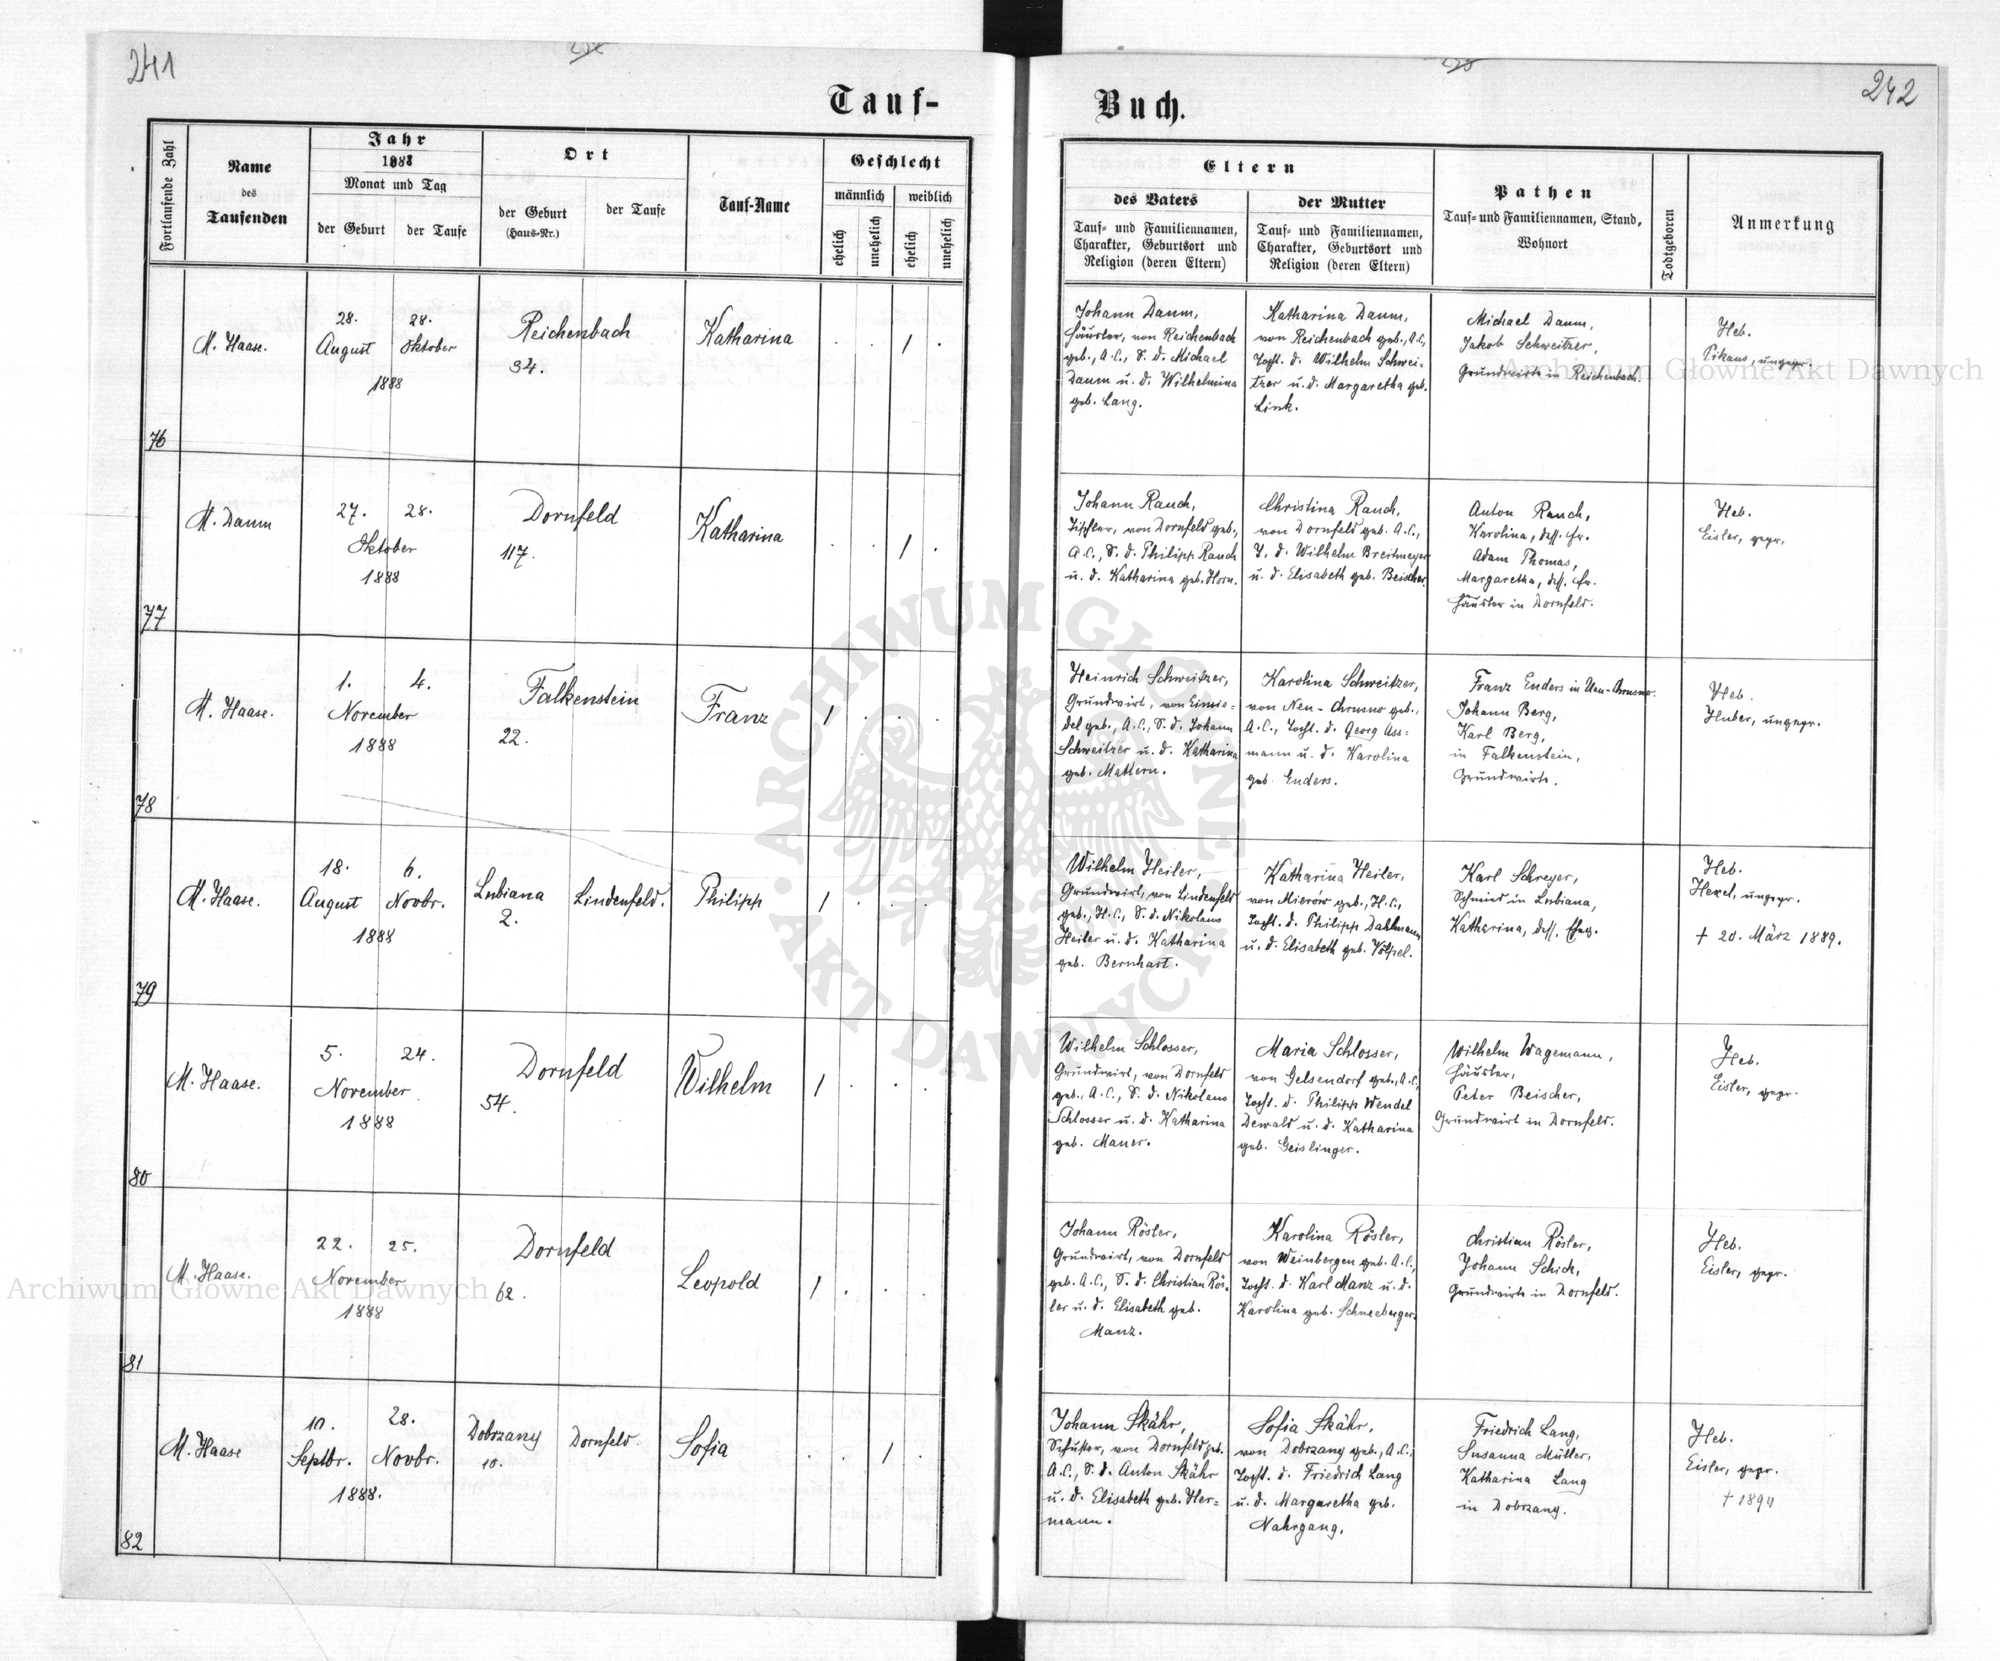 241
242
Tauf-
Buch.
Fortlaufende Zahl
Name
des
Taufenden
Jahr
1888
Monat und Tag
der Geburt
der Taufe
Ort
der Geburt
(Haus-Nr.)
der Taufe
Tauf-Name
Geschlecht
männlich
weiblich
ehelich
unehelich
ehelich
unehelich
Eltern
des Vaters
Tauf- und Familiennamen,
Charakter, Geburtsort und
Religion (deren Eltern)
der Mutter
Tauf- und Familiennamen,
Charakter, Geburtsort und
Religion (deren Eltern)
Pathen
Tauf- und Familiennamen, Stand,
Wohnort
Todtgeboren
Anmerkung
76
M. Haase.
28. 28.
August Oktober
1888
Reichenbach
34.
Katharina
Johann Daum,
Häusler, von Reichenbach
geb., A.C., S. d. Michael
Daum u. d. Wilhelmina
geb. Lang.
Katharina Daum,
von Reichenbach geb., A.C.,
Tocht. d. Wilhelm Schwei-
tzer u. d. Margaretha geb.
Link.
Michael Daum,
Jakob Schweitzer,
Grundwirte in Reichenbach.
Heb.
Pikaus, ungepr.
77
M. Daum
27. 28.
Oktober
1888
Dornfeld
117.
Katharina
Johann Rauch,
Tischler, von Dornfeld geb.,
A.C., S. d. Philipp Rauch
u. d. Katharina geb. Horn.
Christina Rauch,
von Dornfeld geb. A.C.,
T. d. Wilhelm Breitmeyer
u. d. Elisabeth geb. Beischer.
Anton Rauch,
Karolina, dess. Fr.
Adam Thomas,
Margaretha, dess. Fr.
Häusler in Dornfeld.
Heb.
Eisler, gepr.
78
M. Haase.
1. 4.
November
1888
Falkenstein
22.
Franz
Heinrich Schweitzer,
Grundwirt, von Einsie-
del geb., A.C., S. d. Johann
Schweitzer u. d. Katharina
geb. Mattern.
Karolina Schweitzer,
von Neu-Chrusno geb.,
A.C., Tocht. d. Georg Ass-
mann u. d. Karolina
geb. Enders.
Franz Enders in Neu-Chrusno.
Johann Berg,
Karl Berg,
in Falkenstein,
Grundwirte.
Heb.
Huber, ungepr.
79
M. Haase.
18. 6.
August Novbr.
1888
Lubiana
2.
Lindenfeld.
Philipp
Wilhelm Heiler,
Grundwirt, von Lindenfeld
geb., H.C., S. d. Nikolaus
Heiler u. d. Katharina
geb. Bernhart.
Katharina Heiler,
von Mierów geb., H.C.,
Tocht. d. Philipp Dahlmann
u. d. Elisabeth geb. Völpel.
Karl Schreyer,
Schmied in Lubiana,
Katharina, dess. Eheg.
Heb.
Hexel, ungepr.
† 20. März 1889.
80
M. Haase.
5. 24.
November
1888
Dornfeld
54.
Wilhelm
Wilhelm Schlosser,
Grundwirt, von Dornfeld
geb., A.C., S. d. Nikolaus
Schlosser u. d. Katharina
geb. Mauer.
Maria Schlosser,
von Gelsendorf geb., A.C.,
Tocht. d. Philipp Wendel
Dewald u. d. Katharina
geb. Geislinger.
Wilhelm Wagemann,
Häusler,
Peter Beischer,
Grundwirt in Dornfeld.
Heb.
Eisler, gepr.
81
M. Haase.
22. 25.
November
1888
Dornfeld
62.
Leopold
Johann Rösler,
Grundwirt, von Dornfeld
geb. A.C., S. d. Christian Rös-
ler u. d. Elisabeth geb.
Manz.
Karolina Rösler,
von Weinbergen geb. A.C.,
Tocht. d. Karl Manz u. d.
Karolina geb. Schneeberger.
Christian Rösler,
Johann Schick,
Grundwirte in Dornfeld.
Heb.
Eisler, gepr.
82
M. Haase
10. 28.
Septbr. Novbr.
1888.
Dobrzany
10.
Dornfeld.
Sofia
Johann Skähr,
Schuster, von Dornfeld geb.
A.C., S. d. Anton Skähr
u. d. Elisabeth geb. Her-
mann.
Sofia Skähr,
von Dobrzany geb., A.C.,
Tocht. d. Friedrich Lang
u. d. Margaretha geb.
Nahrgang.
Friedrich Lang,
Susanna Müller,
Katharina Lang
in Dobrzany.
Heb.
Eisler, gepr.
† 1894
Archiwum Główne Akt Dawnych
Archiwum Główne Akt Dawnych
ARCHIWUM GŁÓWNE AKT DAWNYCH